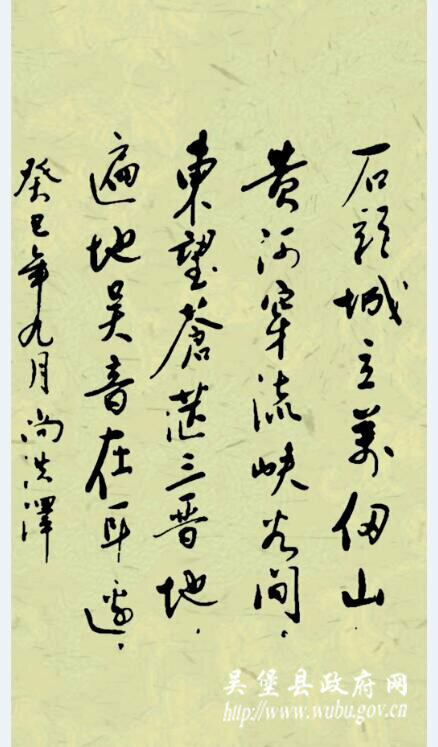 石頭城立萬仞山.
黄河穿流峡谷间.
東望蒼茫三晋地.
遍地吴音在耳边.
癸巳年九月尚洪澤
吴堡县政府网
http://www.wubu.gov.cn